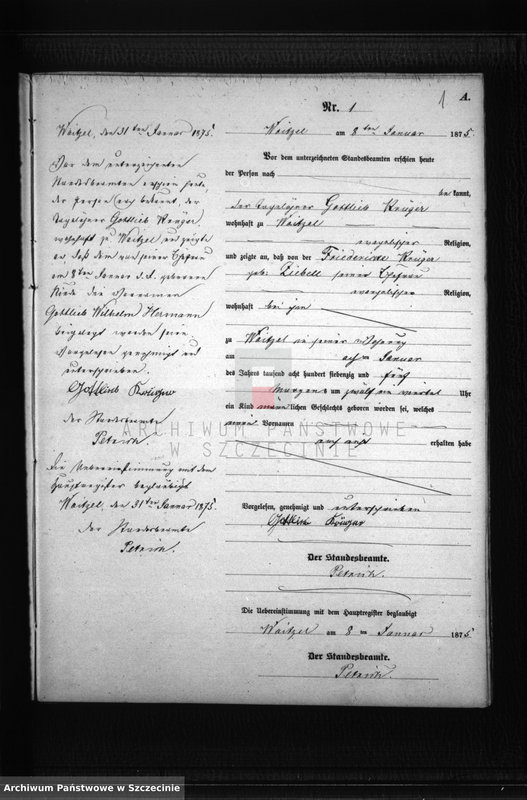 A.
1
Nr. 1
Waitzel am 8ten Januar 1875.
Vor dem unterzeichneten Standesbeamten erschien heute
der Person nach
bekannt,
der Tagelöhner Gottlieb Krüger
wohnhaft zu Waitzel
evangelischer Religion,
und zeigte an, daß von der Friederike Krüger
geb. Ziebell seiner Ehefrau
evangelischer Religion,
wohnhaft bei ihm
zu Waitzel in seiner Wohnung
am achten Januar
des Jahres tausend acht hundert siebenzig und fünf
Morgens um zwölf ein viertel Uhr
ein Kind männlichen Geschlechts geboren worden sei, welches
einen Vornamen
erhalten habe
Vorgelesen, genehmigt und unterschrieben
Gottlieb Krüger
Der Standesbeamte.
Petrich.
Die Uebereinstimmung mit dem Hauptregister beglaubigt
Waitzel am 8ten Januar 1875.
Der Standesbeamte.
Petrich.
Waitzel, den 31ten Januar 1875.
Vor dem unterzeichneten
Standesbeamten erschien heute,
der Person nach bekannt, der
Tagelöhner Gottlieb Krüger,
wohnhaft zu Waitzel und zeigte
an, daß dem von seiner Ehefrau
am 8ten Januar d. J. geborenen
Kinde die Vornamen
Gottlieb Wilhelm Hermann
beigelegt worden seien
Vorgelesen genehmigt und
unterschrieben.
Gottlieb Krüger
der Standesbeamte
Petrich.
Die Uebereinstimmung mit dem
Hauptregister beglaubigt
Waitzel, den 31ten Januar 1875.
der Standesbeamte
Petrich.
ARCHIWUM PAŃSTWOWE
W SZCZECINIE
Archiwum Państwowe w Szczecinie